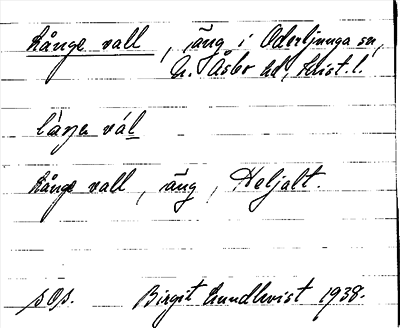 Långe vall, äng i Oderljunga sn,
N. Åsbo hd, Krist. l.
låŋe vál
Långe vall, äng, Heljalt.
sOs. Birgit Lundkvist 1938.